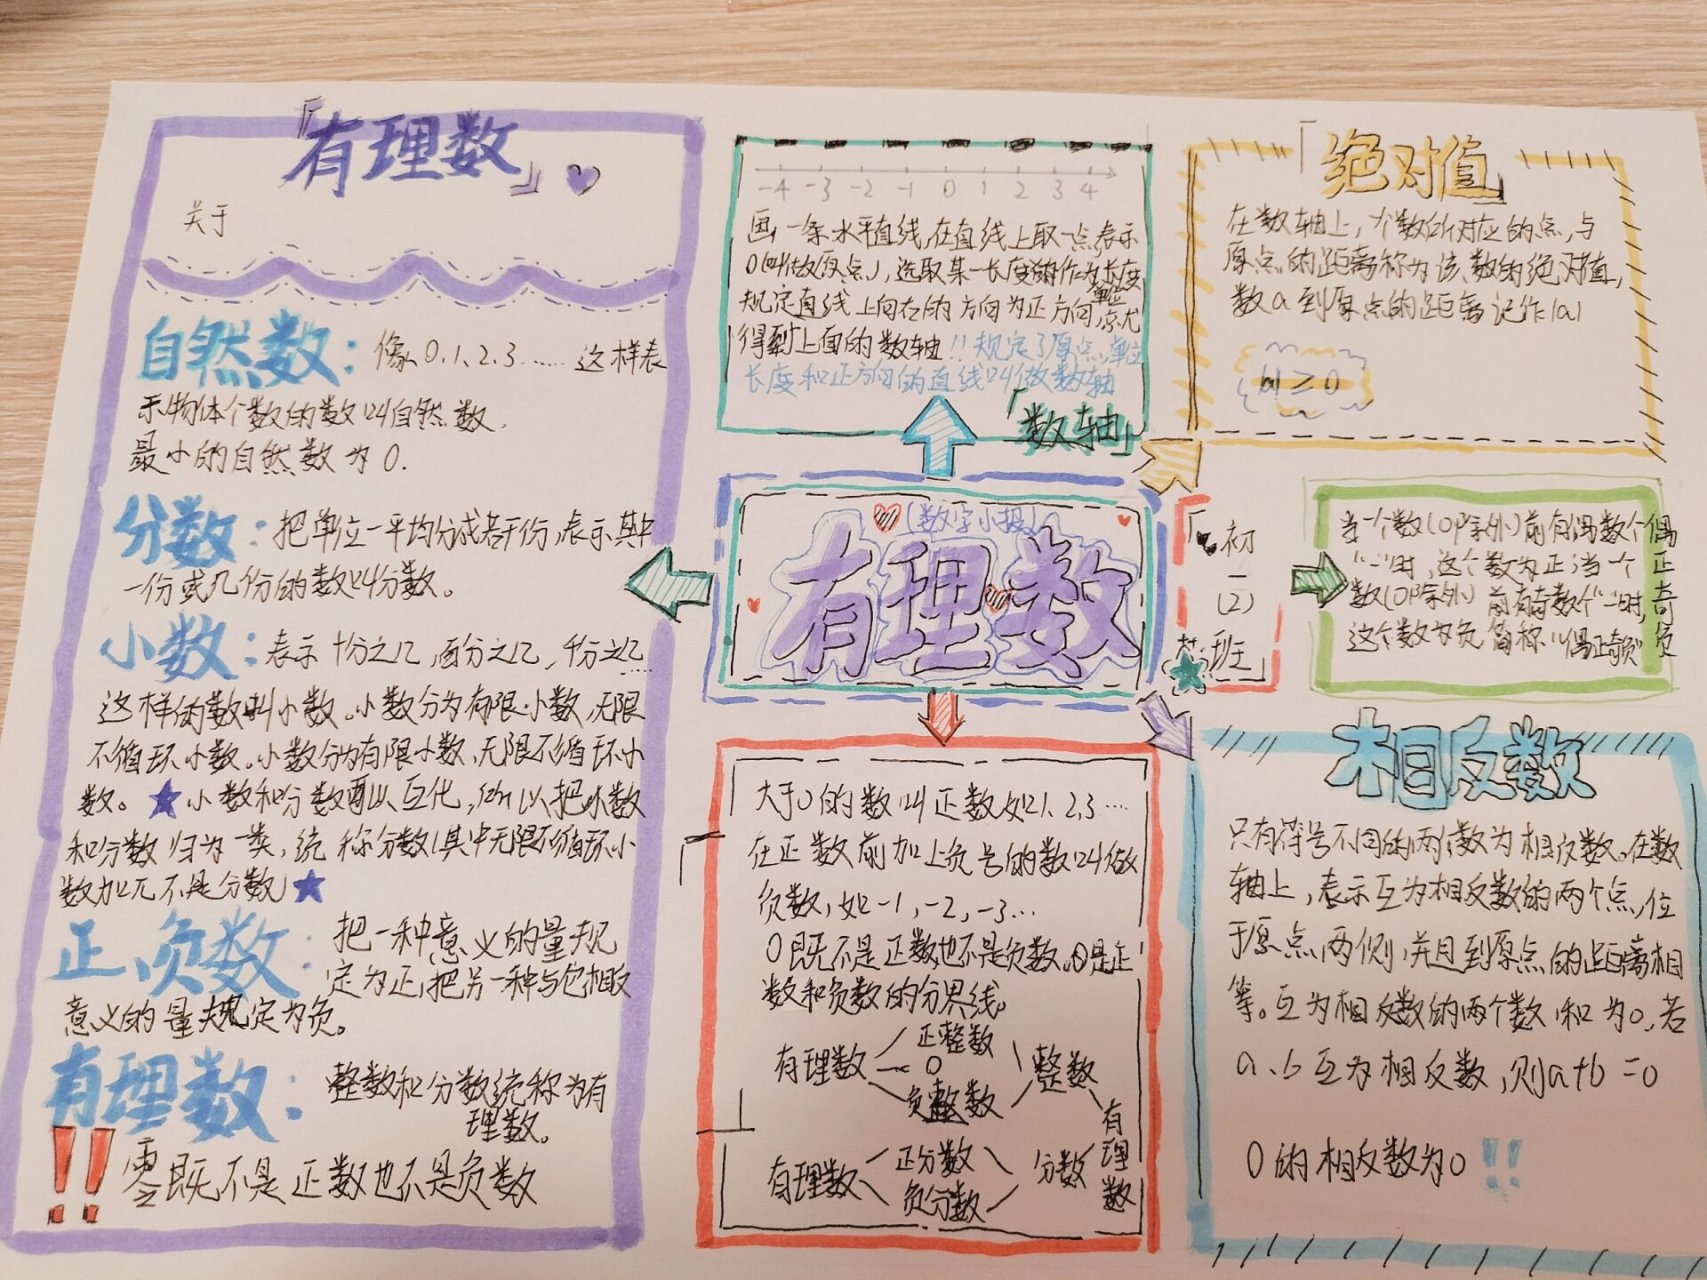 「有理数」
关于
自然数：像0、1、2、3……这样表
示物体个数的数叫自然数，
最小的自然数为0.
分数：把单位一平均分成若干份，表示其中
一份或几份的数叫分数。
小数：表示十分之几，百分之几，千分之几……
这样的数叫小数。小数分为有限小数，无限
不循环小数。小数分为有限小数、无限不循环小
数。★小数和分数可以互化，所以把小数
和分数归为一类，统称分数(其中无限不循环小
数如π不是分数)★
正、负数：把一种意义的量规
定为正，把另一种与它相反
意义的量规定为负。
有理数：整数和分数统称为有
理数。
!!零既不是正数也不是负数
-4 -3 -2 -1 0 1 2 3 4
画一条水平直线，在直线上取一点表示
0(叫做原点)，选取某一长度作为单位长度
规定直线上向右的方向为正方向，就
得到上面的数轴!!规定了原点、单位
长度和正方向的直线叫做数轴
「数轴」
(数字小报)
有理数
「初
一
(2)
班」
「绝对值」
在数轴上，一个数所对应的点，与
原点的距离称为该数的绝对值，
数a到原点的距离记作|a|
|a|≥0
当一个数(0除外)前有偶数个
“-”时，这个数为正；当一个
数(0除外)前有奇数个“-”时，
这个数为负，简称“偶正奇负”
偶正奇负
大于0的数叫正数如1、2、3……
在正数前加上负号的数叫做
负数，如-1，-2，-3…
0既不是正数也不是负数。0是正
数和负数的分界线。
有理数 正整数 0 负整数 整数
有理数 正分数 负分数 分数
有理数
相反数
只有符号不同的两个数为相反数。在数
轴上，表示互为相反数的两个点，位
于原点两侧，并且到原点的距离相
等。互为相反数的两个数和为0，若
a、b互为相反数，则a+b=0
0的相反数为0!!